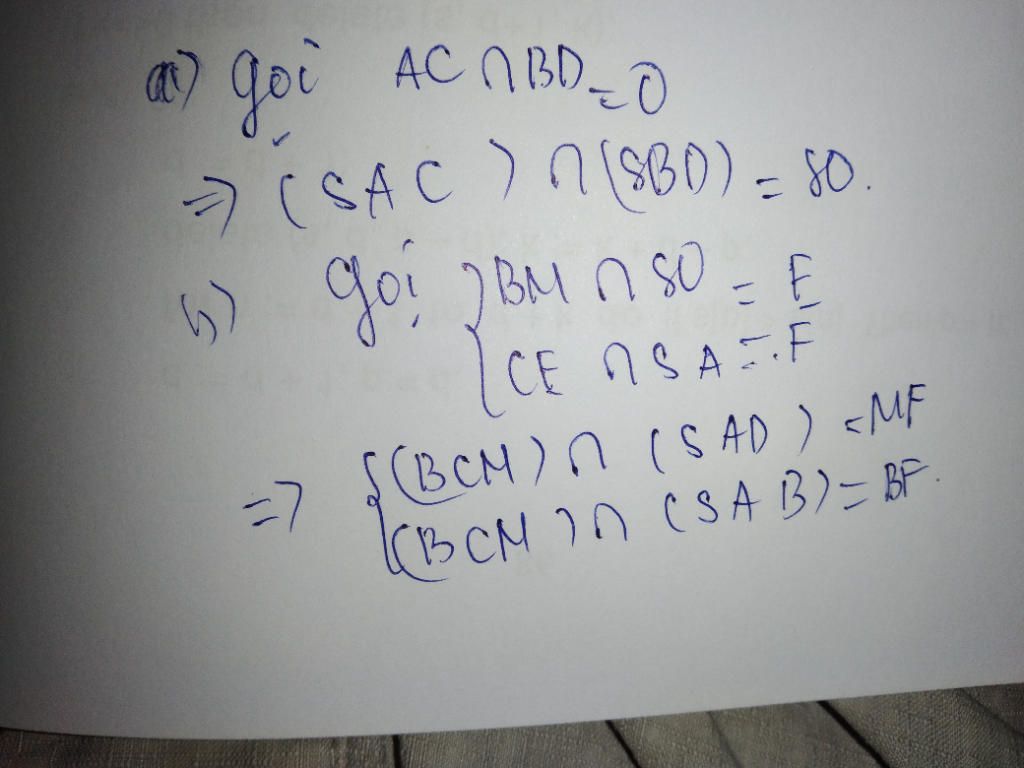 a) gọi AC ∩ BD = O
=> (SAC) ∩ (SBD) = SO.
b) Gọi { BM ∩ SO = E
CE ∩ SA = F
=> { (BCM) ∩ (SAD) = MF
(BCM) ∩ (SAB) = BF.